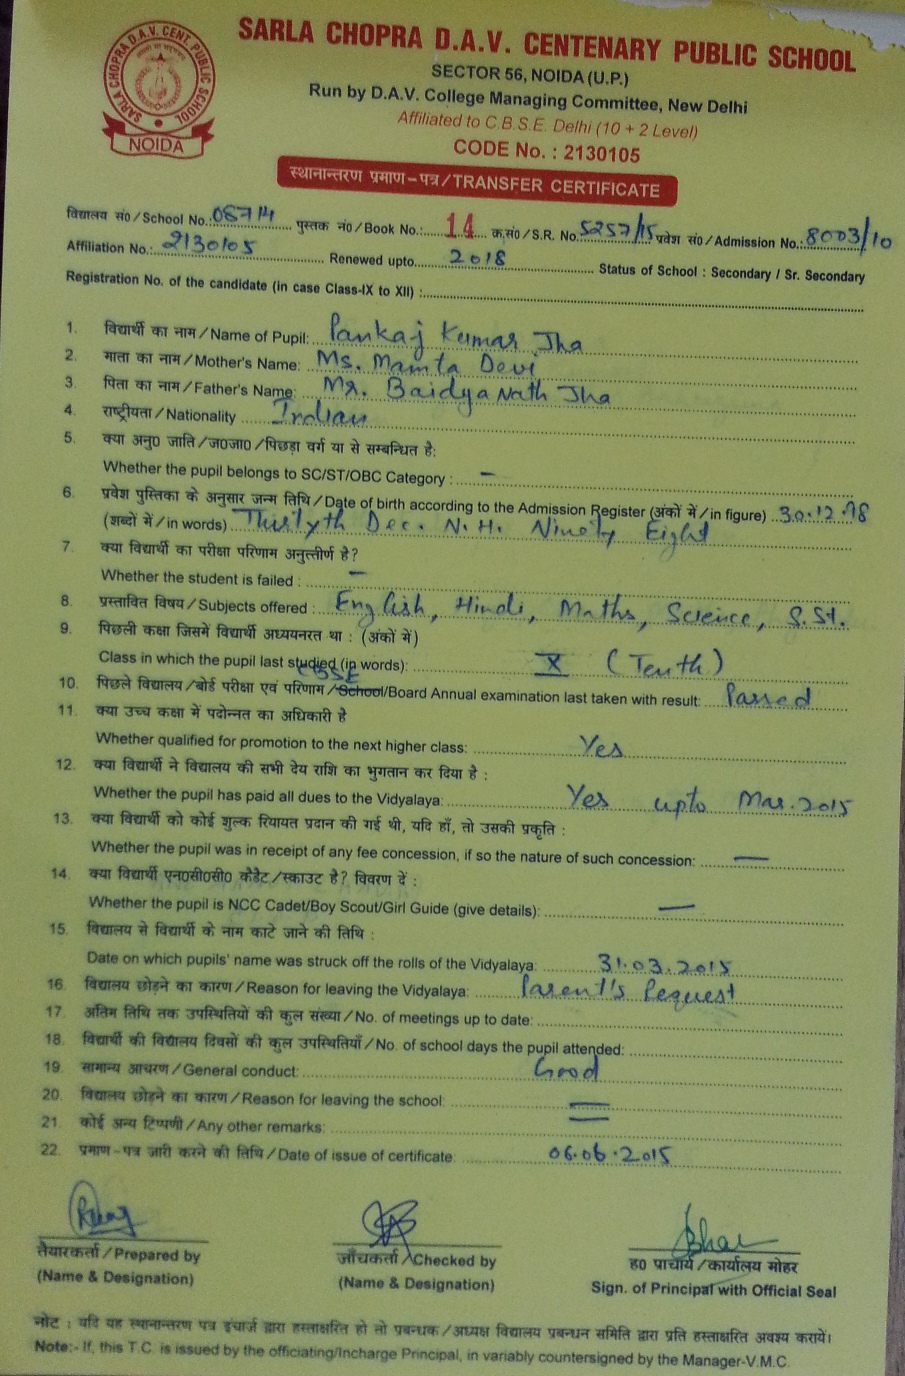 SARLA CHOPRA D.A.V. CENT. PUBLIC SCHOOL
NOIDA
SARLA CHOPRA D.A.V. CENTENARY PUBLIC SCHOOL
SECTOR 56, NOIDA (U.P.)
Run by D.A.V. College Managing Committee, New Delhi
Affiliated to C.B.S.E. Delhi (10 + 2 Level)
CODE No. : 2130105
स्थानान्तरण प्रमाण-पत्र/TRANSFER CERTIFICATE
विद्यालय सं0/School No. 08714 पुस्तक नं0/Book No.: 14 क्र.सं0/S.R. No. 5257/15 प्रवेश सं0/Admission No.: 8003/10
Affiliation No.: 2130105 Renewed upto 2018 Status of School : Secondary / Sr. Secondary
Registration No. of the candidate (in case Class-IX to XII) :
1. विद्यार्थी का नाम/Name of Pupil: Pankaj Kumar Jha
2. माता का नाम/Mother's Name: Ms. Mamta Devi
3. पिता का नाम/Father's Name: Mr. Baidya Nath Jha
4. राष्ट्रीयता/Nationality Indian
5. क्या अनु0 जाति/ज0जा0/पिछड़ा वर्ग या से सम्बन्धित है:
Whether the pupil belongs to SC/ST/OBC Category : –
6. प्रवेश पुस्तिका के अनुसार जन्म तिथि/Date of birth according to the Admission Register (अंकों में/in figure) 30.12.98
(शब्दों में/in words) Thirtyth Dec. N.H. Ninety Eight
7. क्या विद्यार्थी का परीक्षा परिणाम अनुत्तीर्ण है?
Whether the student is failed : –
8. प्रस्तावित विषय/Subjects offered : English, Hindi, Maths, Science, S.St.
9. पिछली कक्षा जिसमें विद्यार्थी अध्ययनरत था : (अंकों में)
Class in which the pupil last studied (in words): X (Tenth)
CBSE
10. पिछले विद्यालय/बोर्ड परीक्षा एवं परिणाम/School/Board Annual examination last taken with result: Passed
11. क्या उच्च कक्षा में पदोन्नत का अधिकारी है
Whether qualified for promotion to the next higher class: Yes
12. क्या विद्यार्थी ने विद्यालय की सभी देय राशि का भुगतान कर दिया है :
Whether the pupil has paid all dues to the Vidyalaya: Yes upto Mar. 2015
13. क्या विद्यार्थी को कोई शुल्क रियायत प्रदान की गई थी, यदि हाँ, तो उसकी प्रकृति :
Whether the pupil was in receipt of any fee concession, if so the nature of such concession: —
14. क्या विद्यार्थी एन0सी0सी0 कैडैट/स्काउट है? विवरण दें :
Whether the pupil is NCC Cadet/Boy Scout/Girl Guide (give details): —
15. विद्यालय से विद्यार्थी के नाम काटे जाने की तिथि :
Date on which pupils' name was struck off the rolls of the Vidyalaya: 31.03.2015
16. विद्यालय छोड़ने का कारण/Reason for leaving the Vidyalaya: Parent's Request
17. अंतिम तिथि तक उपस्थितियों की कुल संख्या/No. of meetings up to date:
18. विद्यार्थी की विद्यालय दिवसों की कुल उपस्थितियाँ/No. of school days the pupil attended:
19. सामान्य आचरण/General conduct: Good
20. विद्यालय छोड़ने का कारण/Reason for leaving the school: —
21. कोई अन्य टिप्पणी/Any other remarks: —
22. प्रमाण-पत्र जारी करने की तिथि/Date of issue of certificate: 06.06.2015
तैयारकर्ता/Prepared by जाँचकर्ता/Checked by ह0 प्राचार्य/कार्यालय मोहर
(Name & Designation) (Name & Designation) Sign. of Principal with Official Seal
नोट : यदि यह स्थानान्तरण पत्र इंचार्ज द्वारा हस्ताक्षरित हो तो प्रबन्धक/अध्यक्ष विद्यालय प्रबन्धन समिति द्वारा प्रति हस्ताक्षरित अवश्य करायें।
Note:- If, this T.C. is issued by the officiating/Incharge Principal, in variably countersigned by the Manager-V.M.C.